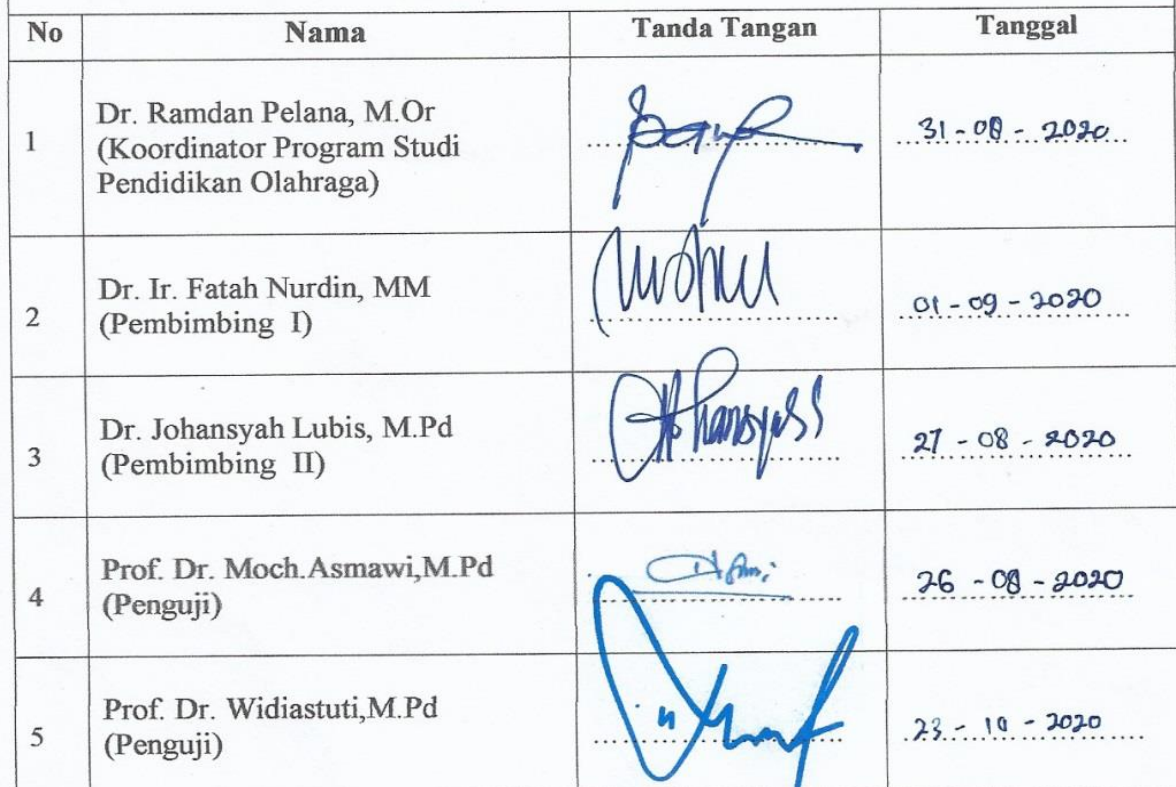 No Nama Tanda Tangan Tanggal
Dr. Ramdan Pelana, M.Or
1 (Koordinator Program Studi 31 - 08 - 2020
Pendidikan Olahraga)
Dr. Ir. Fatah Nurdin, MM
2 (Pembimbing I) 01 - 09 - 2020
Dr. Johansyah Lubis, M.Pd
3 (Pembimbing II) 27 - 08 - 2020
Prof. Dr. Moch.Asmawi,M.Pd
4 (Penguji) 26 - 08 - 2020
Prof. Dr. Widiastuti,M.Pd
5 (Penguji) 23 - 10 - 2020